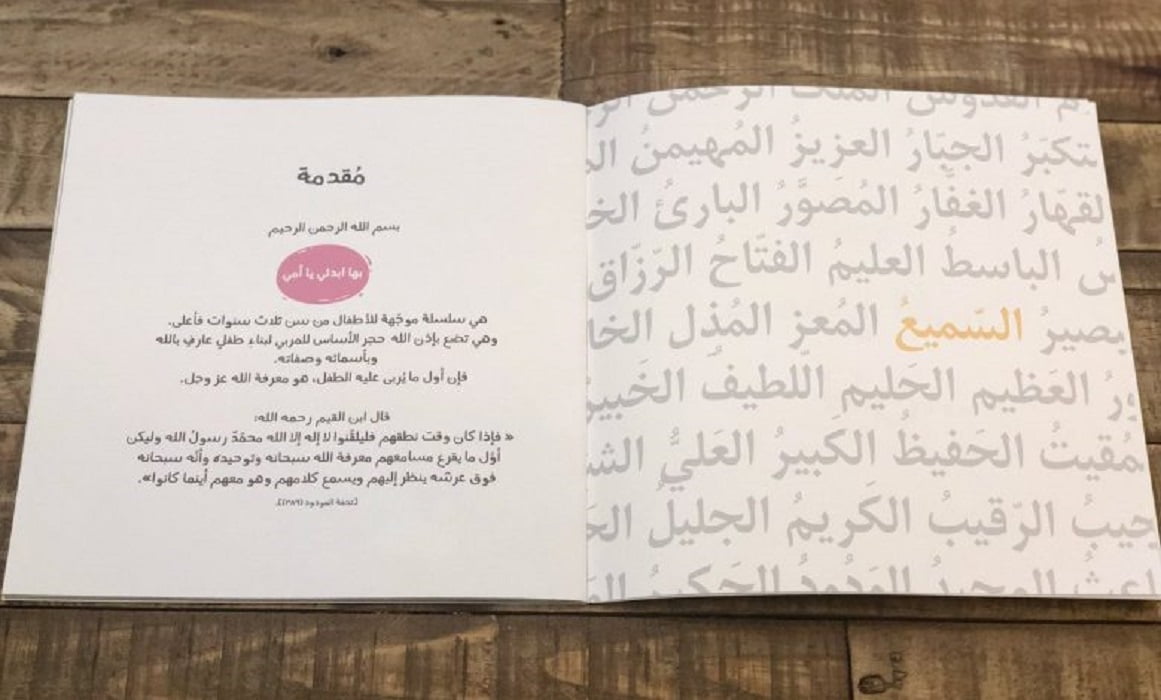 مُقدمة
بسم الله الرحمن الرحيم
بها ابدئي يا أمي
هي سلسلة موجّهة للأطفال من سن ثلاث سنوات فأعلى.
وهي تضع بإذن الله حجر الأساس للمربي لبناء طفلٍ عارفٍ بالله
وبأسمائه وصفاته.
فإن أول ما يُربى عليه الطفل، هو معرفة الله عز وجل.
قال ابن القيم رحمه الله:
« فإذا كان وقت نطقهم فليلقّنوا لا إله إلا الله محمّدٌ رسولُ الله وليكن
أوّل ما يقرع مسامعهم معرفة الله سبحانه وتوحيده وأنّه سبحانه
فوق عرشه ينظر إليهم ويسمع كلامهم وهو معهم أينما كانوا».
[تحفة المودود (٣٨٩)].
القدوس الملك الرحمن
تكبّرُ الجبّارُ العزيزُ المُهيمنُ
لقهّارُ الغفّارُ المُصوّرُ البارئُ الخا
الباسطُ العليمُ الفتّاحُ الرّزّاق
بصيرُ السّميعُ المُعز المُذل الخا
العَظيم الحَليم اللّطيف الخَبير
مُقيتُ الحَفيظُ الكَبيرُ العَليُّ الش
جيبُ الرّقيبُ الكَريمُ الجليلُ الحَ
اعثُ المجيدُ الوَدُودُ الحَكيمُ